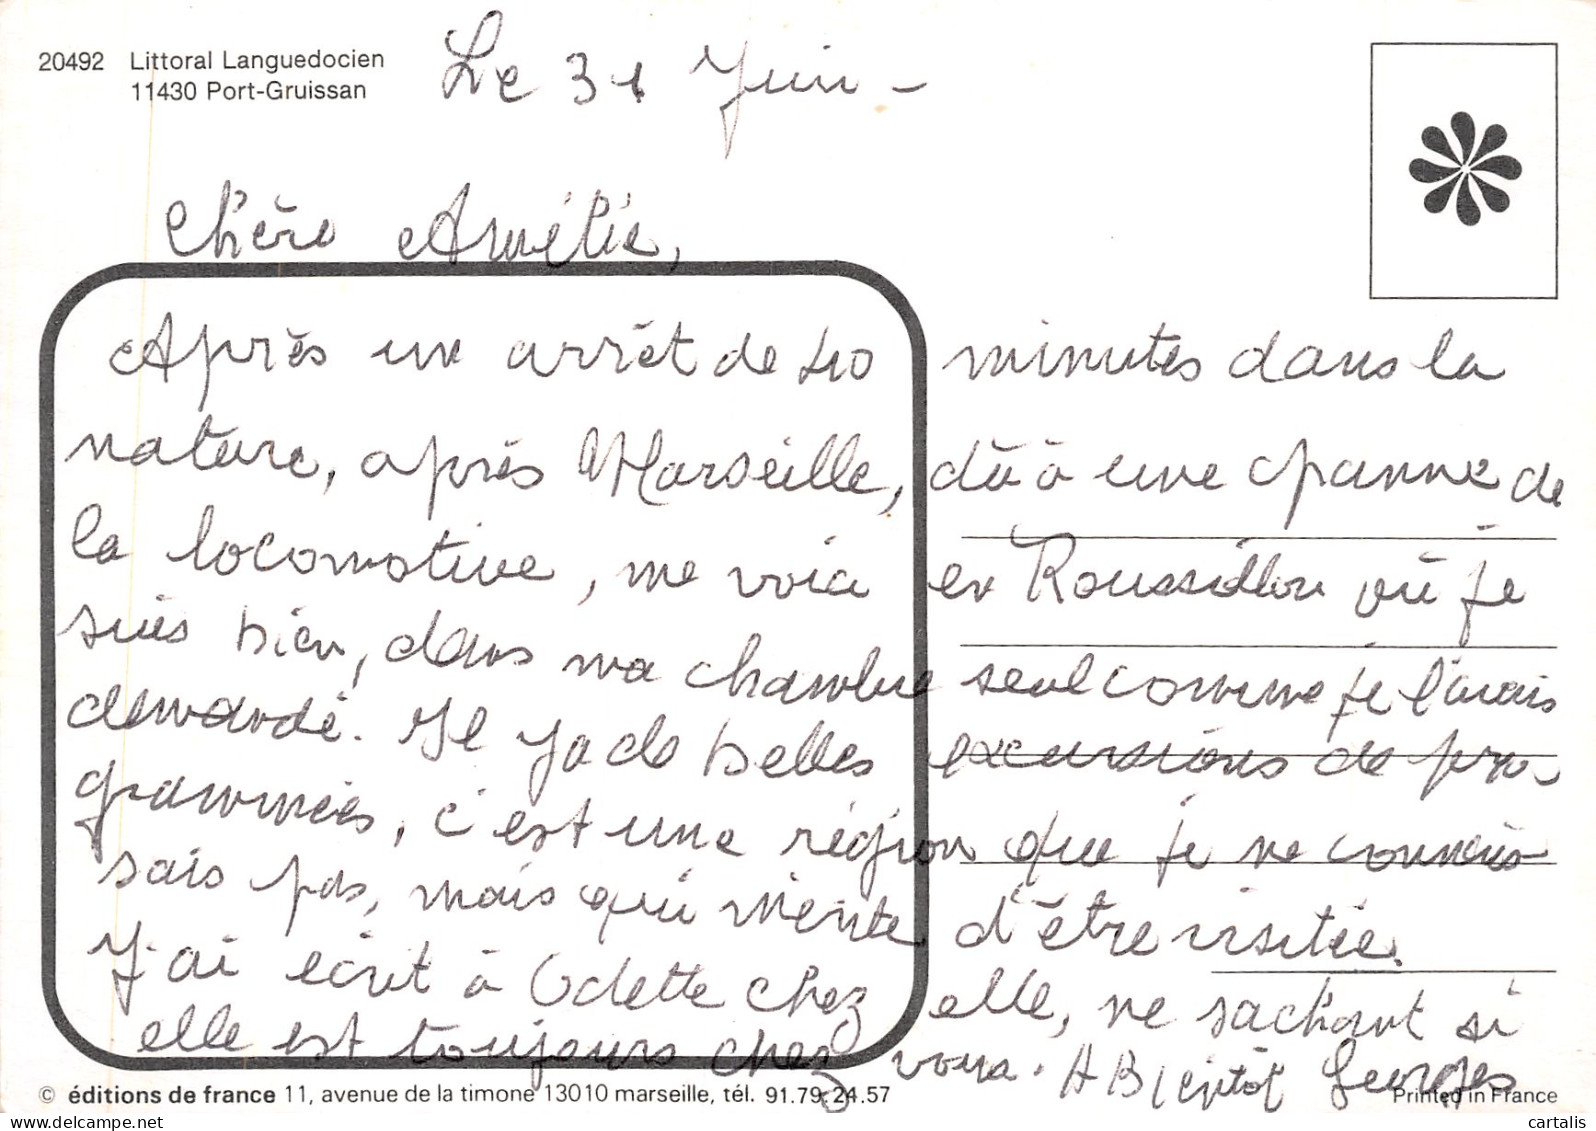 20492 Littoral Languedocien
11430 Port-Gruissan
Le 31 Juin -
Chère Amélie,
Après un arrêt de 40 minutes dans la
nature, après Marseille, dû à une panne de
la locomotive, me voici en Roussillon où je
suis bien, dans ma chambre seul comme je l'avais
demandé. Il y a de belles excursions de pro
grammées, c'est une région que je ne connais
sais pas, mais qui mérite d'être visitée.
J'ai écrit à Odette chez elle, ne sachant si
elle est toujours chez vous. A Bientôt Georges
© éditions de france 11, avenue de la timone 13010 marseille, tél. 91.79.24.57
Printed in France
cartalis.delcampe.net